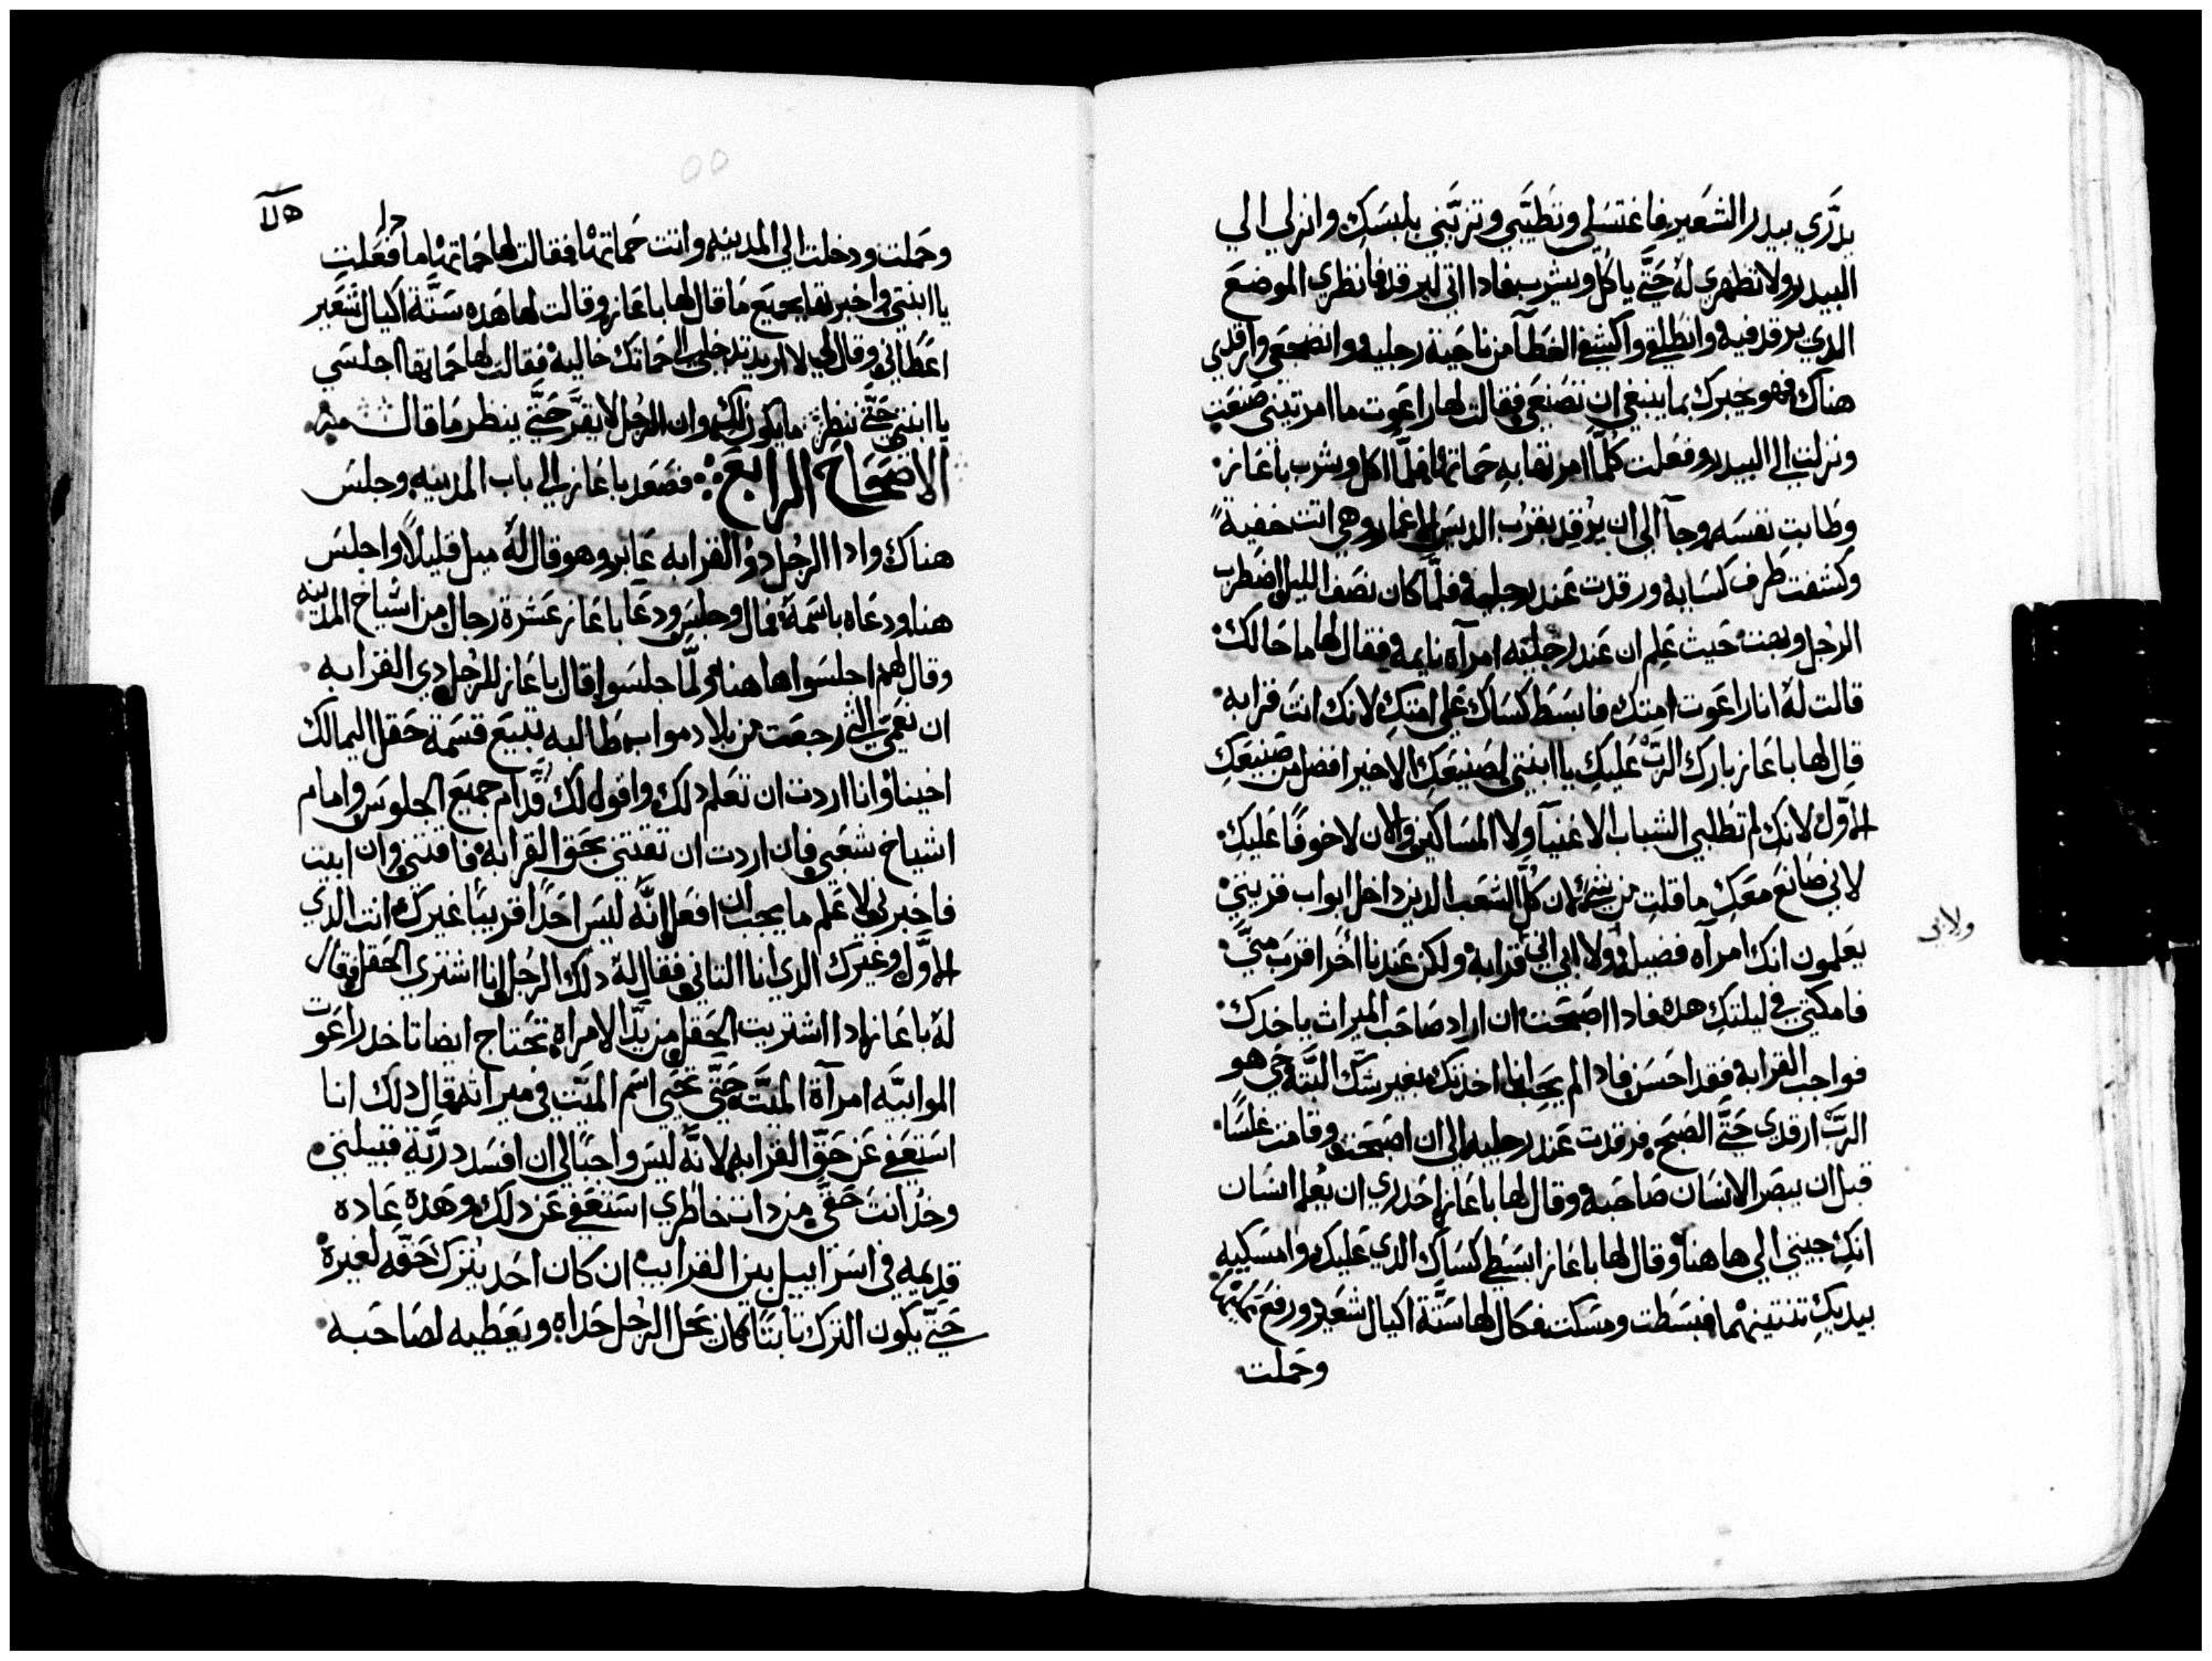 يدري بيدر الشعير فاغتسلي وتطيبي وتزيني بلبسك وانزلي الي
البيدر ولا تظهري له حتي ياكل ويشرب فادا اتي ليرقد فانظري الموضع
الدي يرقد فيه وانطلقي واكشفي الغطا من ناحية رجليه وانضجعي وارقدي
هناك فهو يخبرك بما ينبغي ان تصنعي فقالت لها راعوت ما امرتيني صنعت
ونزلت الي البيدر وفعلت كلما امرتها به حماتها فلما اكل وشرب باعاز
وطابت نفسه وجا الي ان يرقد بقرب الديس الاغمار وهي اتت خفية
وكشفت طرف كسايه ورقدت عند رجليه فلما كان نصف الليل اضطرب
الرجل وبهت حيث علم ان عند رجليه امراه نايمه فقال لها ما حالك
قالت له انا راعوت امتك فابسط كساك علي امتك لانك انت قرابه
قال لها باعاز بارك الرب عليك يا ابنتي لصنيعك الاخير افضل من صنيعك
الاول لانك لم تطلبي الشباب الاغنيا ولا المساكين والان لا خوفا عليك
لاني صانع معك ما قلت من شي لان كل الشعب الدين داخل ابواب قريتي
يعلمون انك امراه فضيله ولا ابي اني قرابه ولكن عندنا اخر اقرب مني
ولاني
فامكتي في ليلتك هده فادا اصبحت ان اراد صاحب الميراث ياخدك
فواجب القرابه فقد احسن فادا لم يحب انا اخدتك بغير شك البته حي هو
الرب ارقدي حتي الصبح فرقدت عند رجليه الي ان اصبحت وقامت غلسا
قبل ان يبصر الانسان صاحبه وقال لها باعاز احدري ان يعلم انسان
انك جيتي الي ها هنا وقال لها باعاز ابسطي كساك الدي عليك وامسكيه
بيديك تنتينهما فبسطت ومسكت فكال لها ستة اكيال شعير ورفع
وحملت
هلا
وحملت ودخلت الي المدينه واتت حماتها فقالت لها حماتها ما فعلت
يا ابنتي واخبرتها بجميع ما قال لها باعاز وقالت لها هده ستة اكيال شعير
اعطاني وقال لي لا اريد تدخلي الي حماتك خاليه فقالت لها حماتها اجلسي
يا ابنتي حتي ننظر ما يكون لك وان الرجل لا يقر حتي ينظر ما قال منه
الاصحاح الرابع فصعد باعاز الي باب المدينه وجلس
هناك وادا الرجل دو القرابه عابر وهو قال له ميل قليلا واجلس
هنا ودعاه باسمه فمال وجلس ودعا باعاز عشرة رجال من اشياخ المدينه
وقال لهم اجلسوا ها هنا ولما جلسوا قال باعاز للرجل دي القرابه
ان نعمي التي رجعت من بلاد مواب طالبه تبيع قسمة حقل اليمالك
اخينا وانا اردت ان تعلم دلك واقول لك قدام جميع الجلوس وامام
اشياخ شعبي فان اردت ان تقتني بحق القرابه فاقتني وان ابيت
فاخبرني لاعلم ما يجب ان افعل انه ليس احدا قريبا غيرك انت الدي
الاول وغيرك الدي انا التاني فقال له دلك الرجل انا اشتري الحقل فقال
له باعاز ادا اشتريت الحقل من يد الامراه تحتاج ايضا تاخد راعوت
الموابيه امراة الميت حتي تحيي اسم الميت في ميراته فقال دلك انا
استعفي عن حق القرابه لانه ليس واجبا لي ان افسد درية قبيلتي
وخد انت حقي من دات خاطري استعفي عن دلك وهده عاده
قديمه في اسراييل بين القرايب ان كان احد يترك حقه لغيره
حتي يكون الترك تابتا كان يحل الرجل حداه ويعطيه لصاحبه